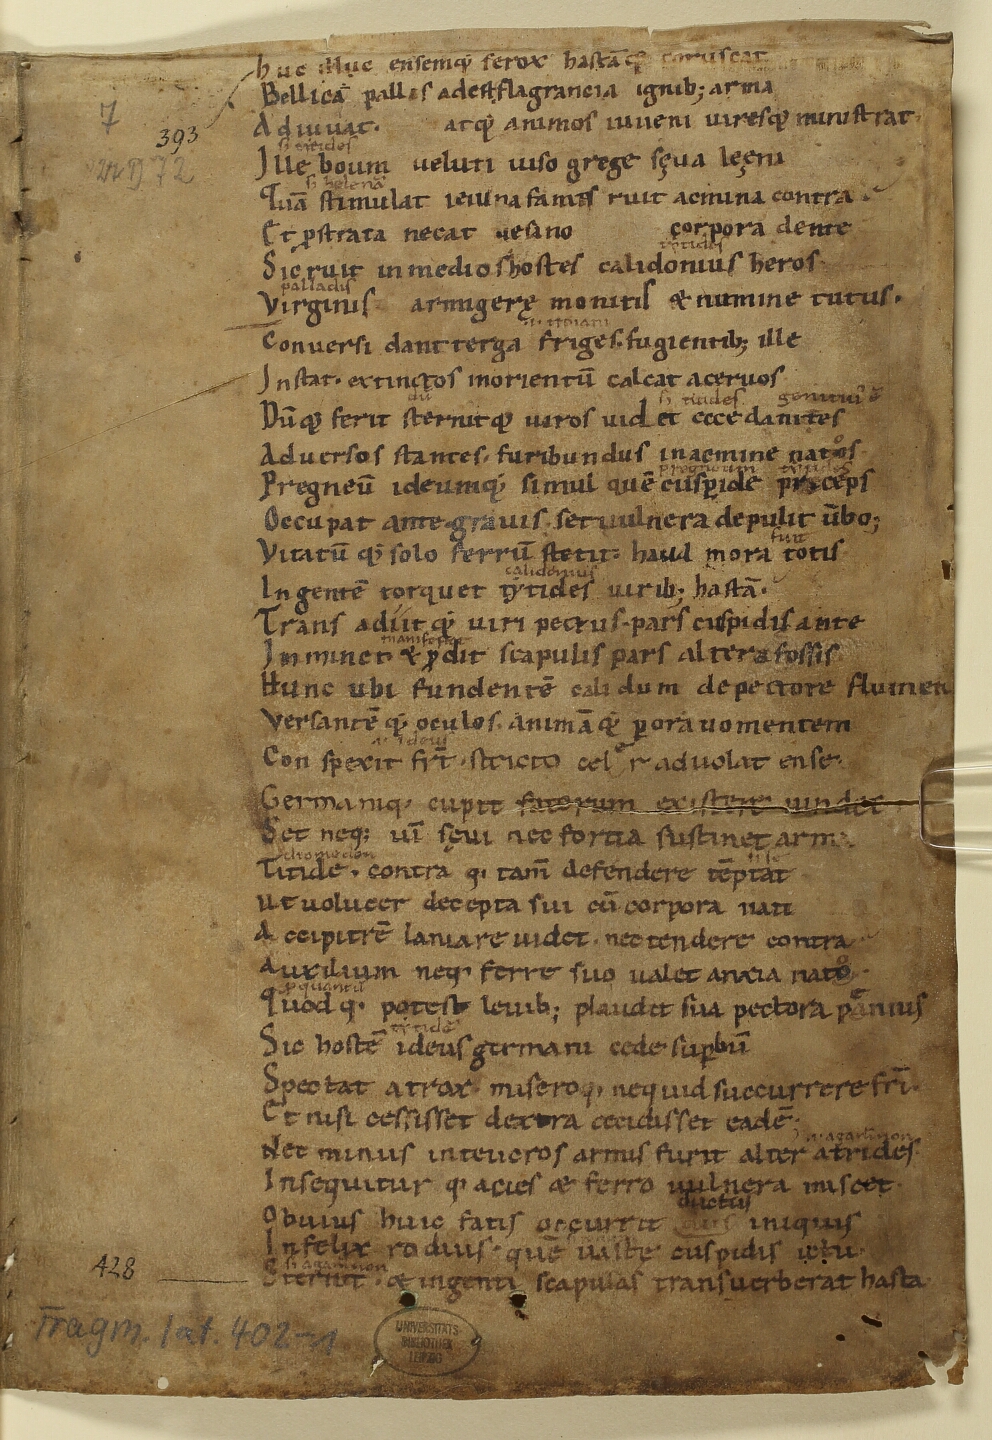 huc illuc ensemq; ferox hastãq; coruscat
7
Bellica pallas adest flagrancia ignib; arma
393
Adiuuat. atq; animos iuueni uiresq; ministrat.
72
s. titides
Ille boum ueluti uiso grege sęua lęena
s. helena
Quã stimulat ieiuna famis ruit acmina contra
Et ꝓstrata necat uesano corpora dente
titides
Sic ruit in medios hostes calidonius heros
palladis
Virginis armigerę monitis & numine tutus.
Conuersi dant terga friges. fugientib; ille
Instat. extinctos morientũ calcat aceruos
s. titides genitiuꝰ ẽ
Dũq; ferit sternitq; uiros uidet ecce danites
Aduersos stantes. furibundus in acmine natos
titides
Pregneũ ideumq; simul quẽ cuspide preceps
Occupat ante grauis. set uulnera depulit ũbo;
fuit
Vitatũ q; solo ferrũ stetit. haud mora totis
calidonius
Ingentẽ torquet tẏtides uirib; hastã.
Trans adiit q; uiri pectus. pars cuspidis ante
manifestat
Inminet. & ꝓdit scapulis pars altera fossis
Hunc ubi fundentẽ calidum de pectore flumen
Versantẽ q; oculos. animã q; ꝑ ora uomentem
s. ideus
Conspexit frt̃. stricto celer aduolat ense.
Germaniq; cupit fatorum existere uindex
Set neq; uĩ sęui nec fortia sustinet arma
diomedon
Titide. contra q; tam̃ defendere tẽptat
ut uolucer decepta sui cũ corpora nati
Accipitrẽ laniare uidet. nec tendere contra
Auxilium neq; ferre suo ualet anxia nato
ꝓ quantũ
Quod q; potest leuib; plaudit sua pectora pennis
titide
Sic hostẽ ideus germani cede suꝑbũ
Spectat atrox. misero q; nequid succurrere frĩ.
Et nisi cessisset dextra cecidisset eadẽ.
s. agamnon
Net minus in teucros armis furit alter atrides
Insequitur q; acies & ferro uulnera miscet
ductus
Obuius huic fatis occurrit iniquis
Infelix rodius. quẽ uaste cuspidis ictu
428
s. agamnon
Sternit. & ingenti scapulas transuerberat hasta
Fragm. lat. 402-1
UNIVERSITÄTS-
BIBLIOTHEK
LEIPZIG